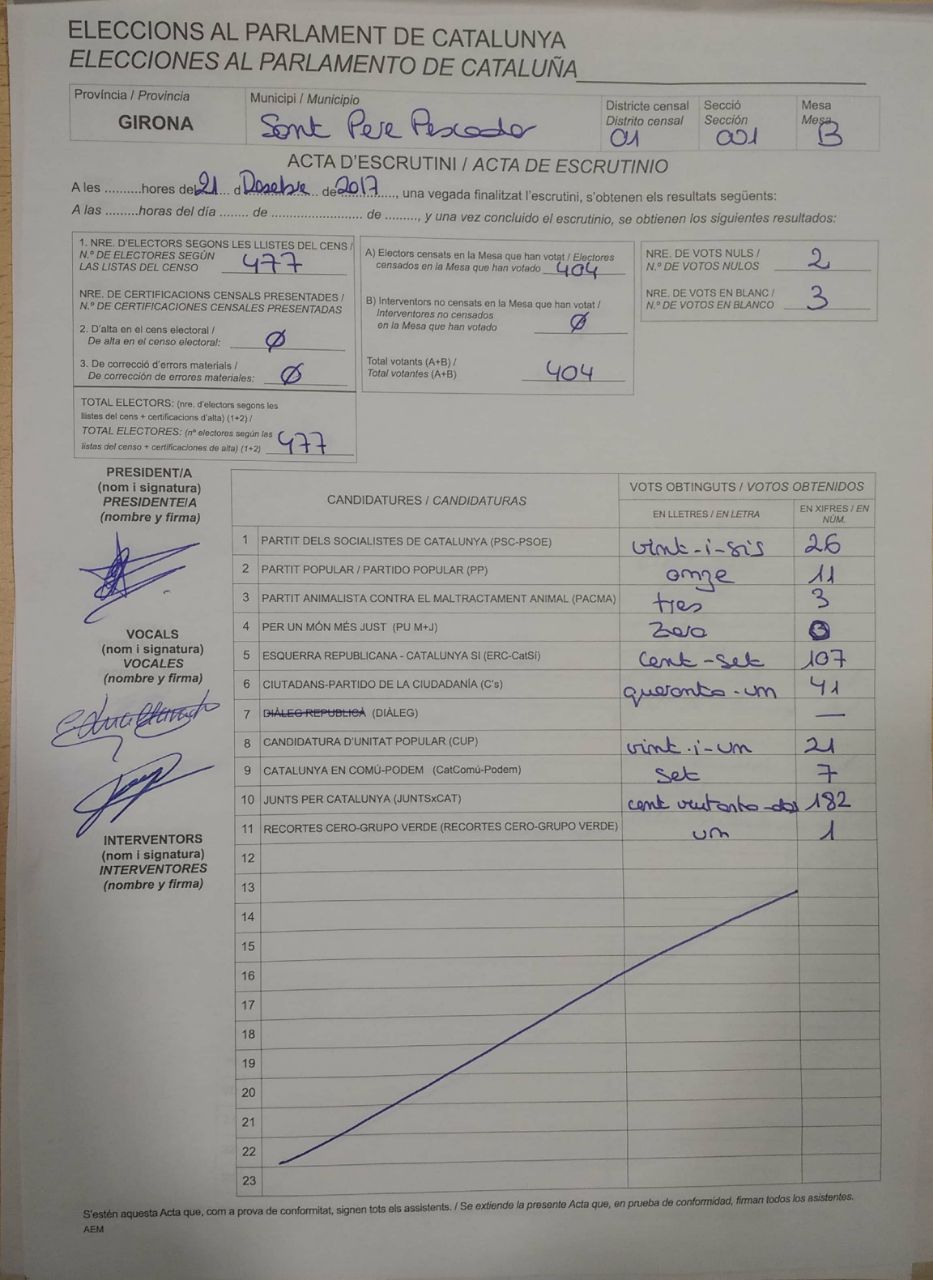 ELECCIONS AL PARLAMENT DE CATALUNYA
ELECCIONES AL PARLAMENTO DE CATALUÑA
Província / Provincia
GIRONA
Municipi / Municipio
Sant Pere Pescador
Districte censal
Distrito censal
01
Secció
Sección
001
Mesa
Mesa
B
ACTA D'ESCRUTINI / ACTA DE ESCRUTINIO
A les .........hores del 21 d Desebre de 2017, una vegada finalitzat l'escrutini, s'obtenen els resultats següents:
A las .........horas del día ........ de ......................... de ........., y una vez concluido el escrutinio, se obtienen los siguientes resultados:
1. NRE. D'ELECTORS SEGONS LES LLISTES DEL CENS /
N.º DE ELECTORES SEGÚN
LAS LISTAS DEL CENSO 477
NRE. DE CERTIFICACIONS CENSALS PRESENTADES /
N.º DE CERTIFICACIONES CENSALES PRESENTADAS
2. D'alta en el cens electoral /
De alta en el censo electoral: Ø
3. De correcció d'errors materials /
De corrección de errores materiales: Ø
TOTAL ELECTORS: (nre. d'electors segons les
llistes del cens + certificacions d'alta) (1+2) /
TOTAL ELECTORES: (nº electores según las
listas del censo + certificaciones de alta) (1+2) 477
A) Electors censats en la Mesa que han votat / Electores
censados en la Mesa que han votado 404
B) Interventors no censats en la Mesa que han votat /
Interventores no censados
en la Mesa que han votado Ø
Total votants (A+B) /
Total votantes (A+B) 404
NRE. DE VOTS NULS /
N.º DE VOTOS NULOS 2
NRE. DE VOTS EN BLANC /
N.º DE VOTOS EN BLANCO 3
PRESIDENT/A
(nom i signatura)
PRESIDENTE/A
(nombre y firma)
VOCALS
(nom i signatura)
VOCALES
(nombre y firma)
INTERVENTORS
(nom i signatura)
INTERVENTORES
(nombre y firma)
CANDIDATURES / CANDIDATURAS
VOTS OBTINGUTS / VOTOS OBTENIDOS
EN LLETRES / EN LETRA
EN XIFRES / EN
NÚM.
1 PARTIT DELS SOCIALISTES DE CATALUNYA (PSC-PSOE) vint-i-sis 26
2 PARTIT POPULAR / PARTIDO POPULAR (PP) onze 11
3 PARTIT ANIMALISTA CONTRA EL MALTRACTAMENT ANIMAL (PACMA) tres 3
4 PER UN MÓN MÉS JUST (PU M+J) Zero 0
5 ESQUERRA REPUBLICANA - CATALUNYA SÍ (ERC-CatSí) cent-set 107
6 CIUTADANS-PARTIDO DE LA CIUDADANÍA (C's) quaranta-un 41
7 DIÀLEG REPUBLICÀ (DIÀLEG) —
8 CANDIDATURA D'UNITAT POPULAR (CUP) vint-i-un 21
9 CATALUNYA EN COMÚ-PODEM (CatComú-Podem) set 7
10 JUNTS PER CATALUNYA (JUNTSxCAT) cent vuitanta-dos 182
11 RECORTES CERO-GRUPO VERDE (RECORTES CERO-GRUPO VERDE) un 1
12
13
14
15
16
17
18
19
20
21
22
23
S'estén aquesta Acta que, com a prova de conformitat, signen tots els assistents. / Se extiende la presente Acta que, en prueba de conformidad, firman todos los asistentes.
AEM